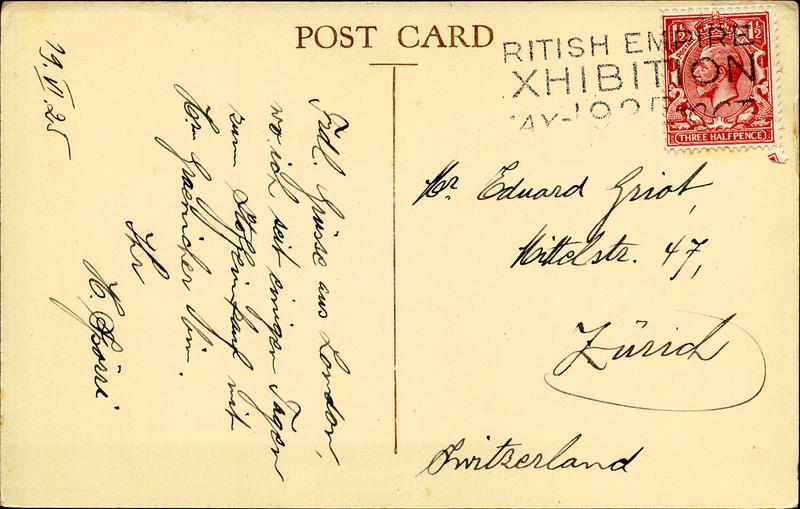 POST CARD
RITISH EMPIRE
XHIBITION
AY-1925 OCT
1½ 1½
THREE HALFPENCE
19.VI.25
Frdl. Grüsse aus London,
wo ich seit einigen Tagen
zum Stoffeinkauf mit
Hrn Graenicher bin.
Ihr
H. Spörri
Mr Eduard Griot,
Mittelstr. 47,
Zürich
Switzerland